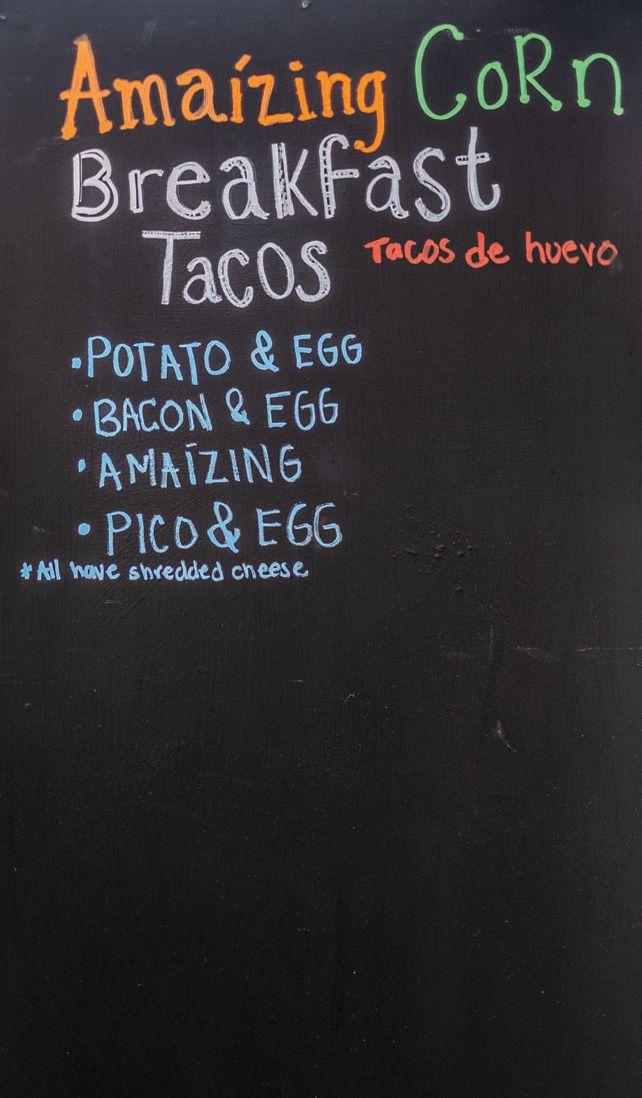 Amaízing CoRn
Breakfast
Tacos Tacos de huevo
• POTATO & EGG
• BACON & EGG
• AMAÍZING
• PICO & EGG
* All have shredded cheese